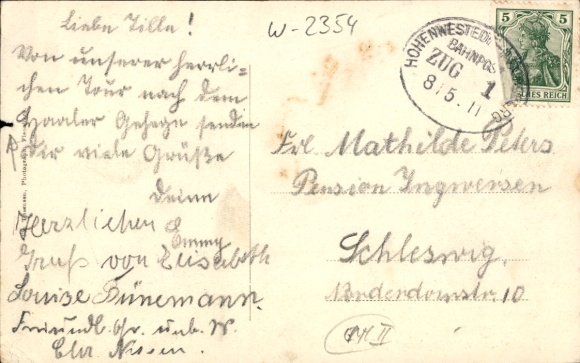 Liebe Tilla!
Von unserer herrli-
chen Tour nach dem
Haaler Gehege senden
dir viele Grüße
deine
Emmy
Herzlichen
Gruß von Elisabeth
Louise Tünemann.
Freundl. Gr. unb. W.
Chr. Nissen.
W-2354
HOHENWESTEDT
BAHNPOST
ZUG 1
8.5.11
5 5
DEUTSCHES REICH
Frl. Mathilde Peters
Pension Ingwersen
Schleswig.
Norderdomstr. 10